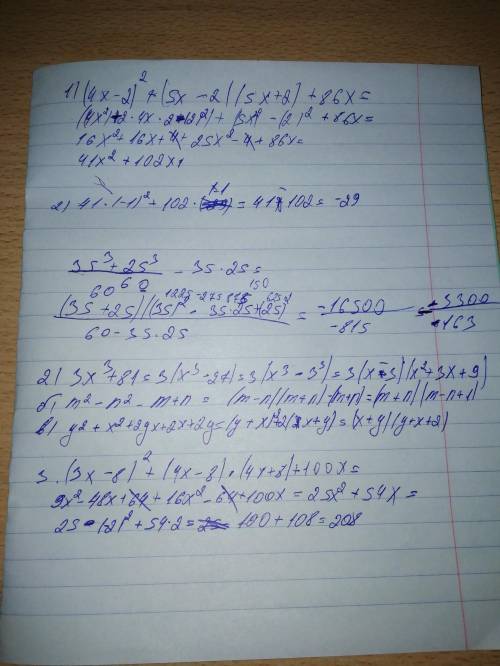 1) (4x-2)² + (5x-2)(5x+2) + 86x =
(4x²)+2·4x·2+(2)²) + (5x)² - (2)² + 86x =
16x² - 16x + 4 + 25x² - 4 + 86x =
41x² + 102x
2) 41·(-1)² + 102·(-1) = 41 - 102 = -29
35³ + 25³
60
- 35·25 =
150
(35+25)(35)² - 35·25+(25)²
60-35·25
= -16500
-815
= -3300
-163
2) 3x³+81 = 3(x³-27) = 3(x³-3³) = 3(x-3)(x²+3x+9)
б) m²-n²-m+n = (m-n)(m+n)-(m+n) = (m+n)(m-n+1)
в) y²+x²+2yx+2x+2y = (y+x)²+2(x+y) = (x+y)(y+x+2)
3. (3x-8)² + (4x-8)·(4x+8)+100x =
9x²-48x+64+16x²-64+100x = 25x²+54x =
25-(2)²+54·2 = 100+108 = 208